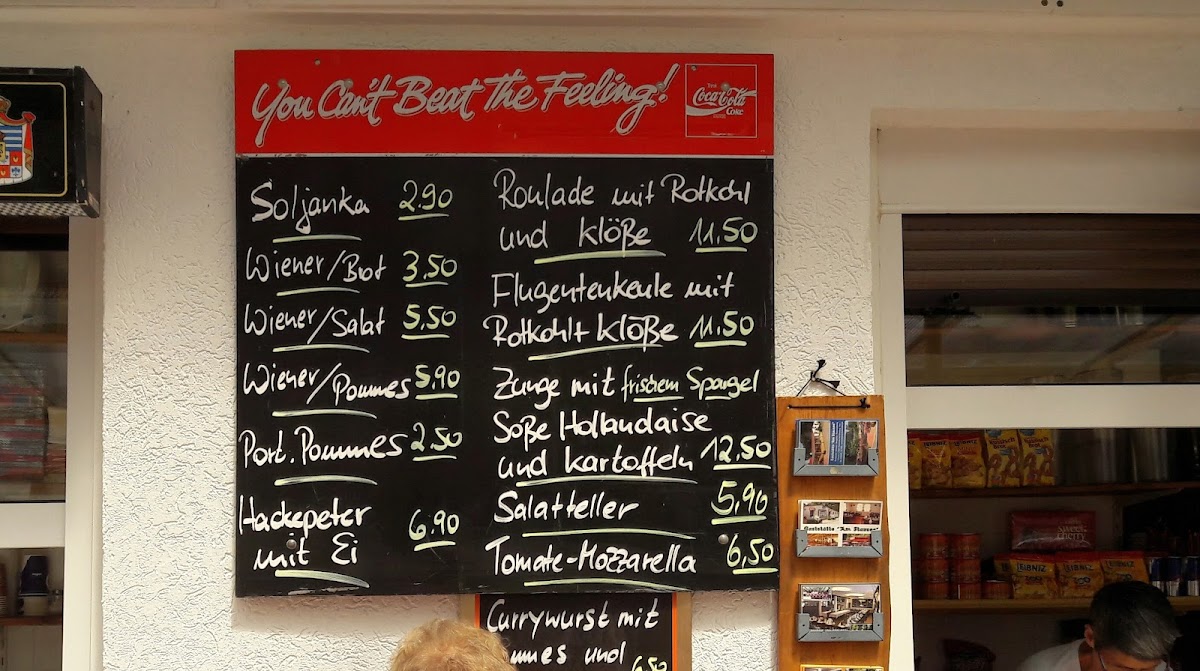 You Can't Beat The Feeling!
Coca-Cola
Coke
Soljanka 2.90
Wiener/Brot 3.50
Wiener/Salat 5.50
Wiener/Pommes 5.90
Port. Pommes 2.50
Hackepeter
mit Ei 6.90
Roulade mit Rotkohl
und Klöße 11.50
Flugentenkeule mit
Rotkohl+ Klöße 11.50
Zunge mit frischem Spargel
Soße Hollandaise
und Kartoffeln 12.50
Salatteller 5,90
Tomate-Mozzarella 6,50
Currywurst mit
und
6,50
LEIBNIZ
sweet
cherry
LEIBNIZ